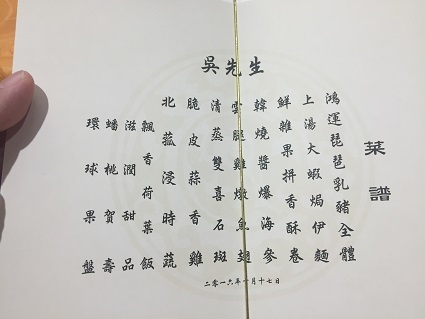 吳先生
菜譜
鴻運琵琶乳豬全體
上湯大蝦焗伊麵
鮮雜果拼香酥卷
韓燒醬爆海參
雲腿雞燉魚翅
清蒸雙喜石斑
脆皮蒜香雞
北菰浸時蔬
飄香荷葉飯
滋潤甜品
蟠桃賀壽
環球果盤
二零一六年月十七日